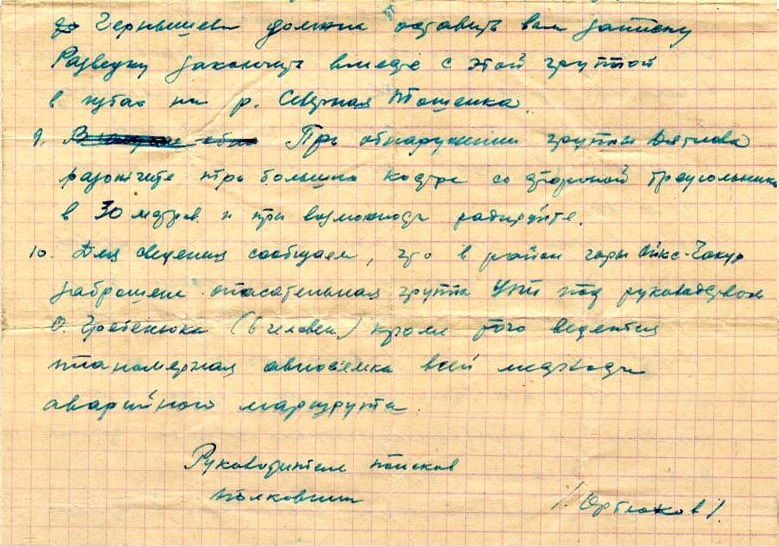 Чернышева должна оставить вам записку
Разведку закончить вместе с этой группой
в чумах на р. Северная Тошемка
9. При обнаружении группы Дятлова
разожгите три больших костра со стороной треугольника
в 30 метров и при возможности радируйте.
10. Для сведения сообщаем, что в район горы Ойко-Чакур
заброшена спасательная группа УПИ под руководством
О. Гребенюка (6 человек) кроме того ведется
планомерная авиосъемка всей местности
аварийного маршрута.
Руководитель поисков
полковник
/Ортюков/.